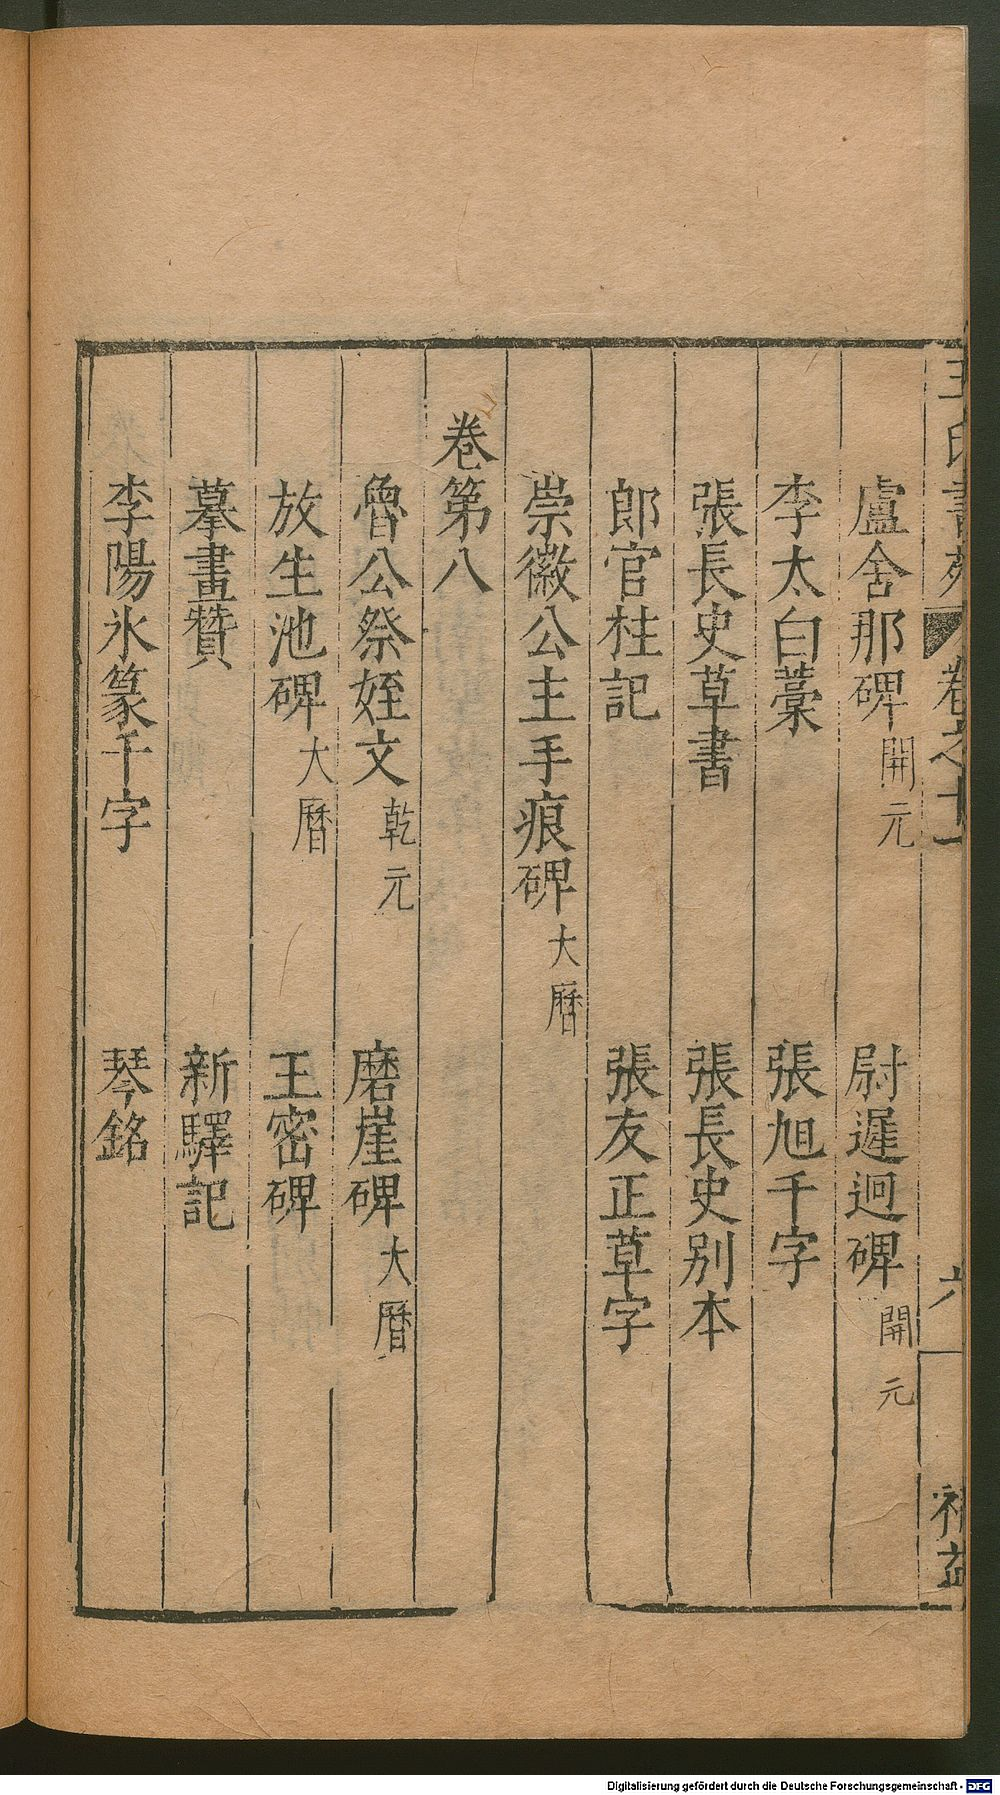 盧舍那碑開元 尉遲迥碑開元
李太白藁 張旭千字
張長史草書 張長史別本
郎官柱記 張友正草字
崇徽公主手痕碑大曆
卷第八
魯公祭姪文乾元 磨崖碑大曆
放生池碑大曆 王密碑
摹畫贊 新驛記
李陽氷篆千字 琴銘
王氏書苑 卷之十一 六
Digitalisierung gefördert durch die Deutsche Forschungsgemeinschaft - DFG